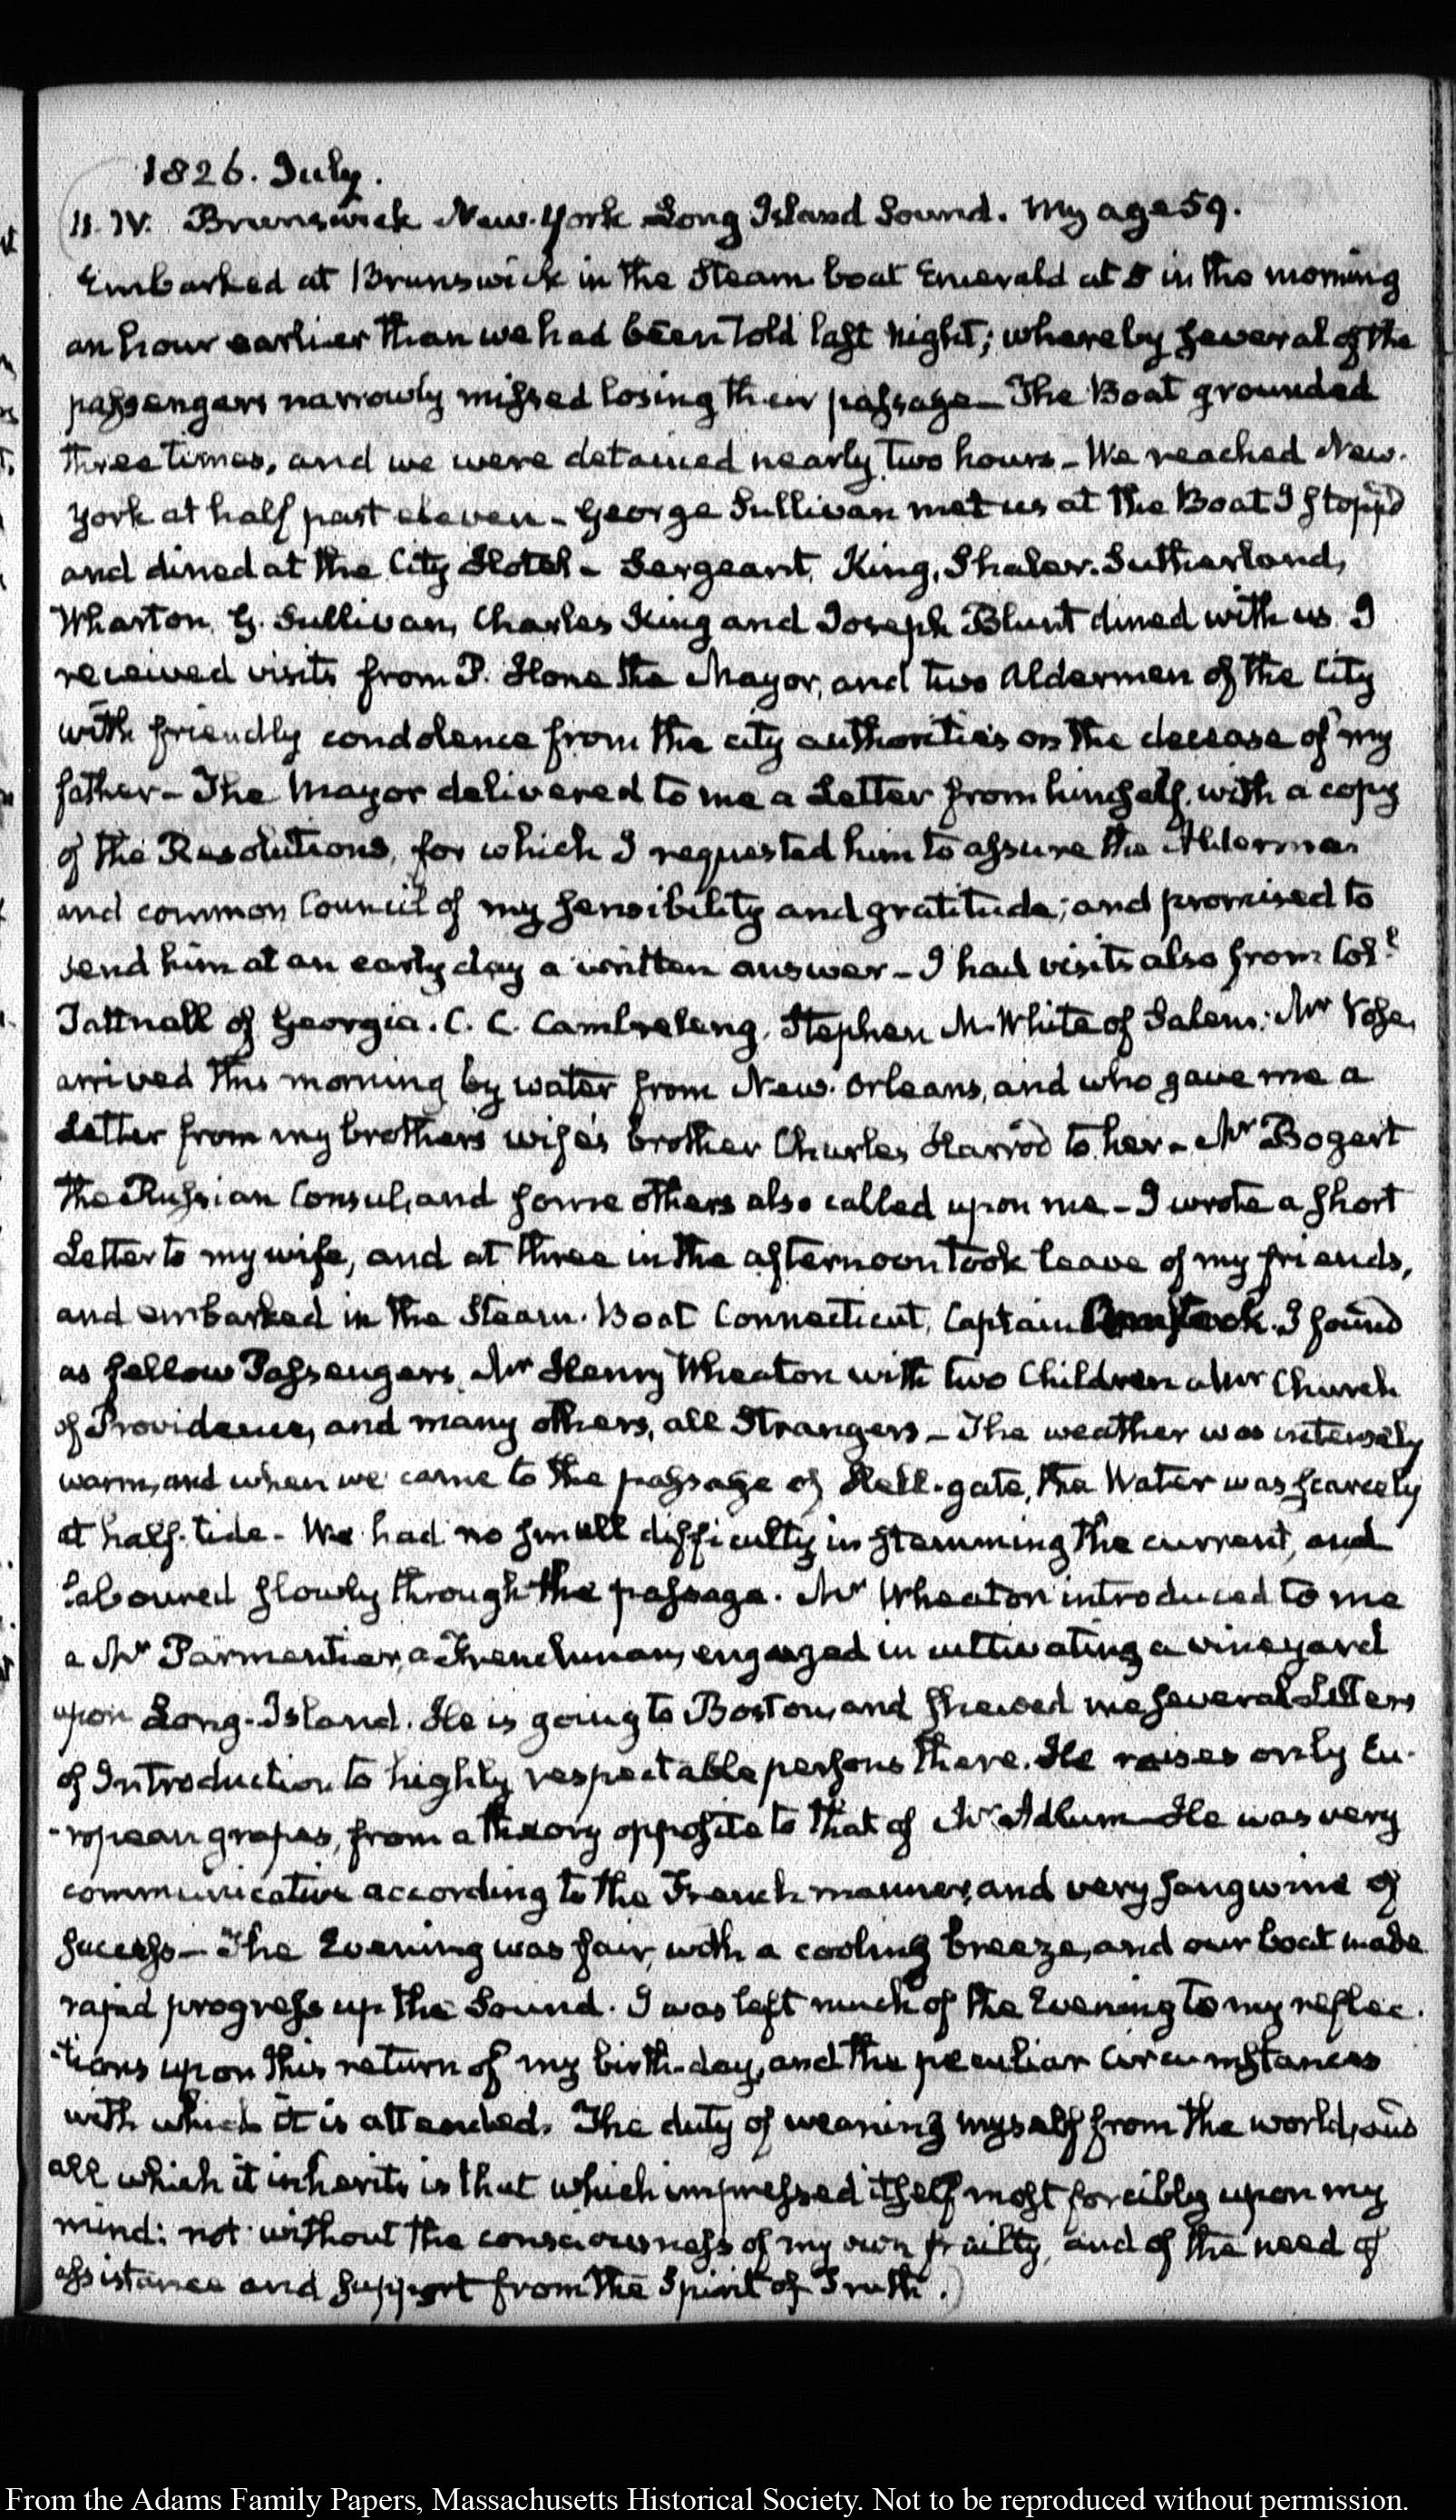 1826. July.
11. IV. Brunswick New-York Long Island Sound. My age 59.
Embarked at Brunswick in the Steam-boat Emerald at 5 in the morning
an hour earlier than we had been told last night; whereby several of the
passengers narrowly missed losing their passage— The Boat grounded
three times, and we were detained nearly two hours— We reached New-
York at half past eleven— George Sullivan met us at the Boat I stopp'd
and dined at the City Hotel— Sergeant, King, Shaler, Sutherland,
Wharton, G. Sullivan, Charles King and Joseph Blunt dined with us I
received visits from P. Hone the Mayor, and two Aldermen of the City
with friendly condolence from the city authorities on the decease of my
father— The Mayor delivered to me a Letter from himself, with a copy
of the Resolutions, for which I requested him to assure the Aldermen
and common Council of my sensibility and gratitude; and promised to
send him at an early day a written answer— I had visits also from Col.l
Tattnall of Georgia. C. C. Cambreleng, Stephen M. White of Salem; Mr Vose,
arrived this morning by water from New-Orleans, and who gave me a
Letter from my brother's wife's brother Charles Harrod to her— Mr Bogert
the Russian Consul, and some others also called upon me— I wrote a short
Letter to my wife, and at three in the afternoon took leave of my friends,
and embarked in the Steam-Boat Connecticut, Captain I found
as fellow Passengers, Mr Henry Wheaton with two Children a Mr Church
of Providence, and many others, all Strangers— The weather was intensely
warm, and when we came to the passage of Hell-gate, the Water was scarcely
at half-tide— We had no small difficulty in stemming the current, and
laboured slowly through the passage. Mr Wheaton introduced to me
a Mr Parmentier, a Frenchman, engaged in cultivating a vineyard
upon Long-Island. He is going to Boston, and shewed me several Letters
of Introduction to highly respectable persons there. He raises only Eu-
-ropean grapes, from a theory opposite to that of Mr Adlum— He was very
communicative according to the French manner, and very sanguine of
success— The Evening was fair, with a cooling breeze, and our boat made
rapid progress up the Sound. I was left much of the Evening to my reflec-
-tions upon this return of my birth-day, and the peculiar circumstances
with which it is attended. The duty of weaning myself from the world, and
all which it inherits is that which impressed itself most forcibly upon my
mind: not without the consciousness of my own frailty, and of the need of
assistance and support from the Spirit of Truth.)
From the Adams Family Papers, Massachusetts Historical Society. Not to be reproduced without permission.